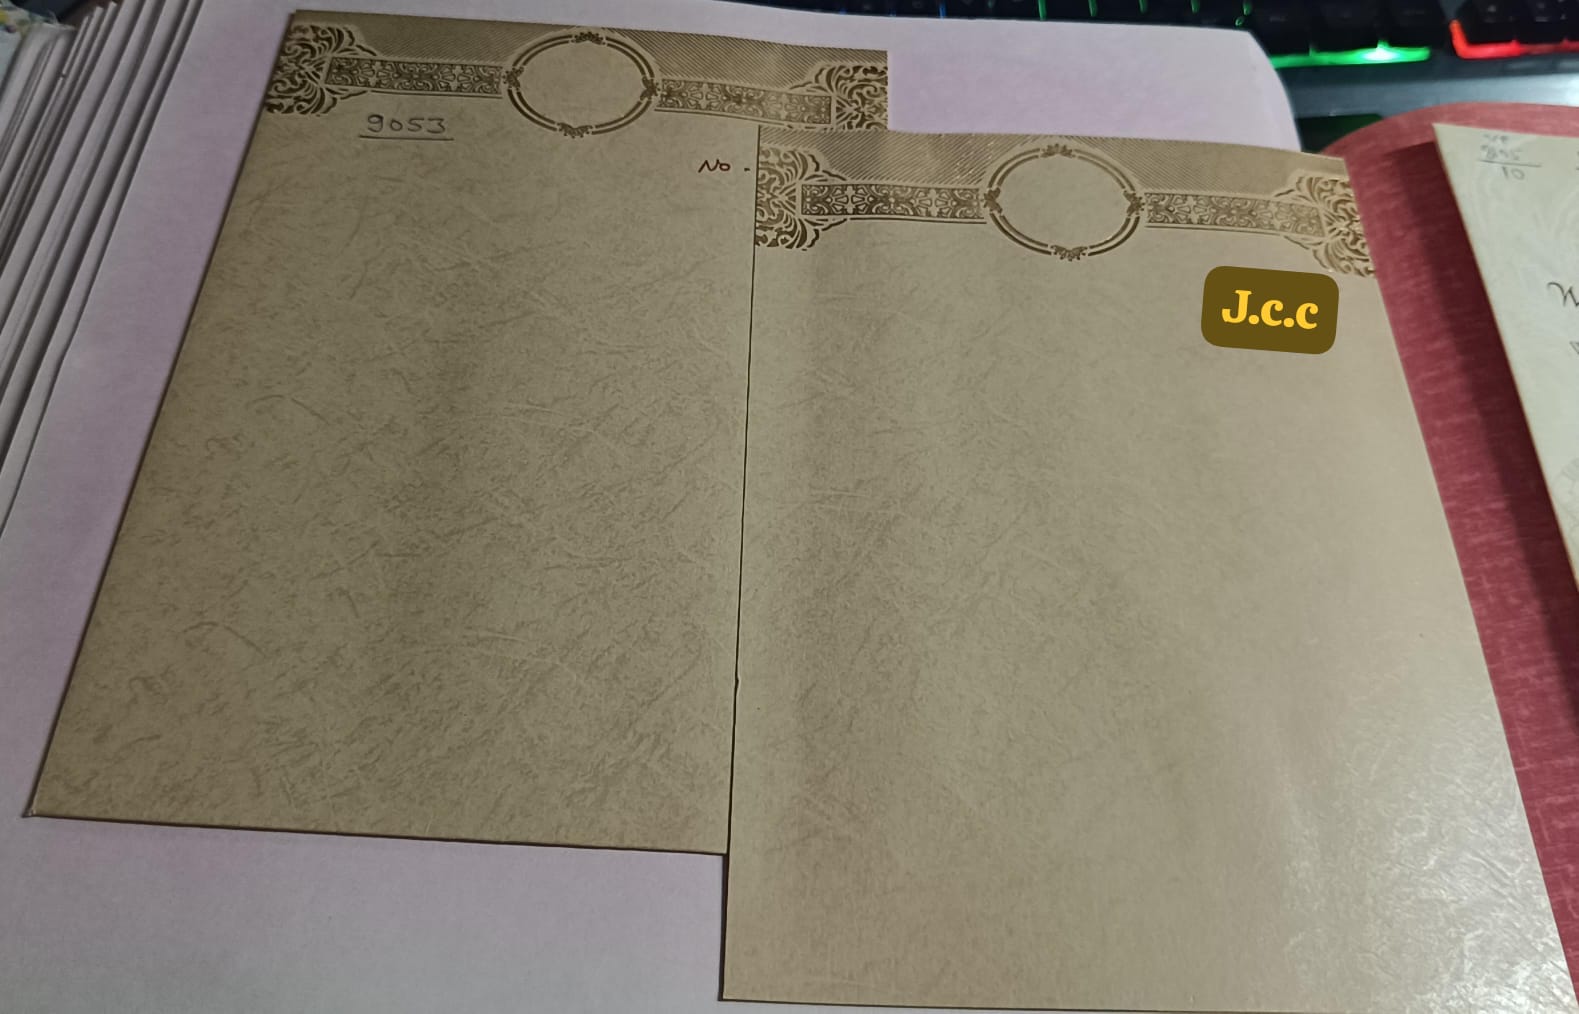 9053
No -
J.c.c
10
W